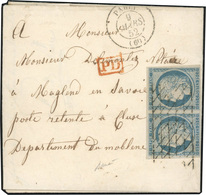 PARIS
(60)
A Monsieur
Monsieur
PD
à Magland en Savoie
poste restante à Cluse
Departement du mobleme